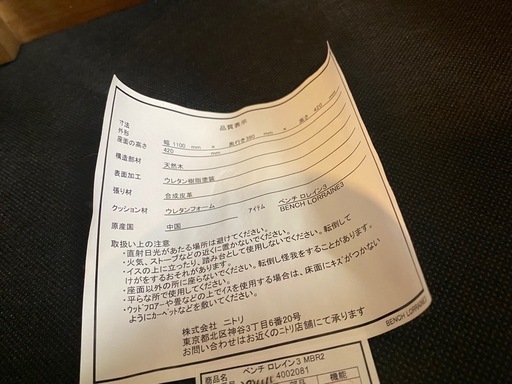 品質表示
寸法
外形 幅 1100 mm × 奥行き 380 mm × 高さ 420 mm
座面の高さ 420 mm
構造部材 天然木
表面加工 ウレタン樹脂塗装
張り材 合成皮革
クッション材 ウレタンフォーム アイテム ベンチ ロレイン3
BENCH LORRAINE3
原産国 中国
取扱い上の注意
・直射日光があたる場所は避けてください。
・火気、ストーブなどの近くに置かないでください。
・イスの上に立ったり、踏み台として使用しないでください。転倒して
けがをするおそれがあります。
・座面以外の所に座らないでください。転倒し怪我をすることがあります。
・平らな所で使用してください。
・ウッドフロアーや畳などの上でイスを使用する場合は、床面にキズがつかない
ようにカーペットなどを敷いてください。
株式会社 ニトリ
東京都北区神谷3丁目6番20号
お問い合わせはお近くのニトリ店舗にて承ります
BENCH LORRAINE3
商品名 ベンチ ロレイン3 MBR2
4002081
部品 機能